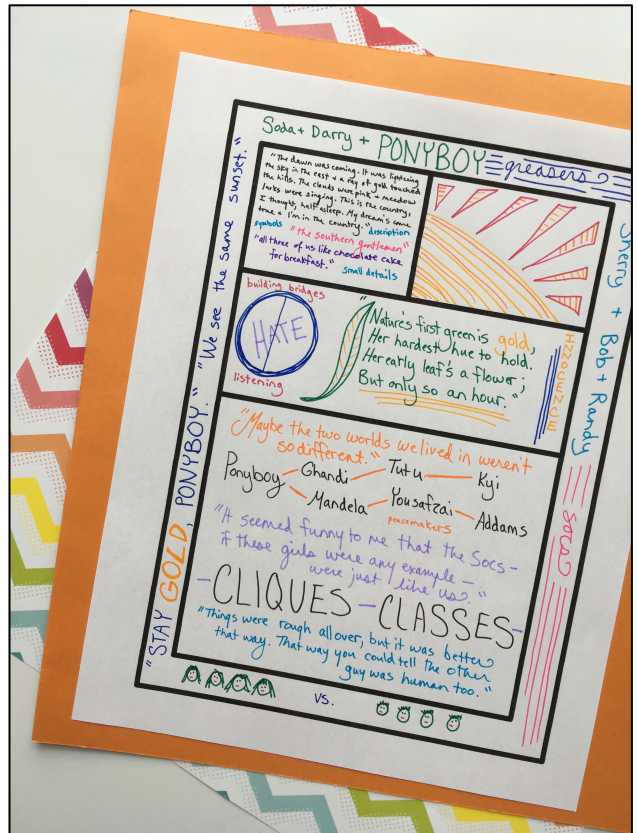 Soda + Darry + PONYBOY greasers
Sherry + Bob + Randy
socs
"STAY GOLD, PONYBOY." "We see the same sunset."
"The dawn was coming. It was lightening
the sky in the east + a ray of gold touched
the hills. The clouds were pink + meadow
larks were singing. This is the country,
I thought, half asleep. My dream's come
true + I'm in the country."
description
symbols
"the southern gentlemen"
"all three of us like chocolate cake
for breakfast."
small details
building bridges
HATE
listening
"Nature's first green is gold,
Her hardest hue to hold.
Her early leaf's a flower;
But only so an hour."
INNOCENCE
"Maybe the two worlds we lived in weren't
so different."
Ponyboy Ghandi Tutu Kyi
Mandela Yousafzai Addams
peacemakers
"It seemed funny to me that the Socs -
if these girls were any example -
were just like us."
- CLIQUES - CLASSES -
"Things were rough all over, but it was better
that way. That way you could tell the other
guy was human too."
vs.